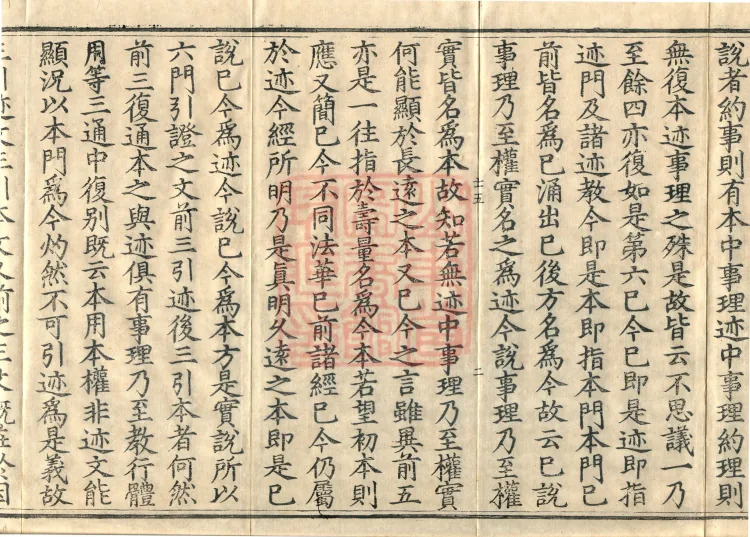 說者約事則有本中事理迹中事理約理則
無復本迹事理之殊是故皆云不思議一乃
至餘四亦復如是第六已今已即是迹即指
迹門及諸迹教今即是本即指本門本門已
前皆名為已涌出已後方名為今故云已說
事理乃至權實名之為迹今說事理乃至權
十五
二
實皆名為本故知若無迹中事理乃至權實
何能顯於長遠之本又已今之言雖異前五
亦是一往指於壽量名為今本若望初本則
應又簡已今不同法華已前諸經已今仍屬
於迹今經所明乃是真明久遠之本即是已
說已今為迹今說已今為本方是實說所以
六門引證之文前三引迹後三引本者何然
前三復通本之與迹俱有事理乃至教行體
用等三通中復別既云本用本權非迹文能
顯況以本門為今灼然不可引迹為是義故